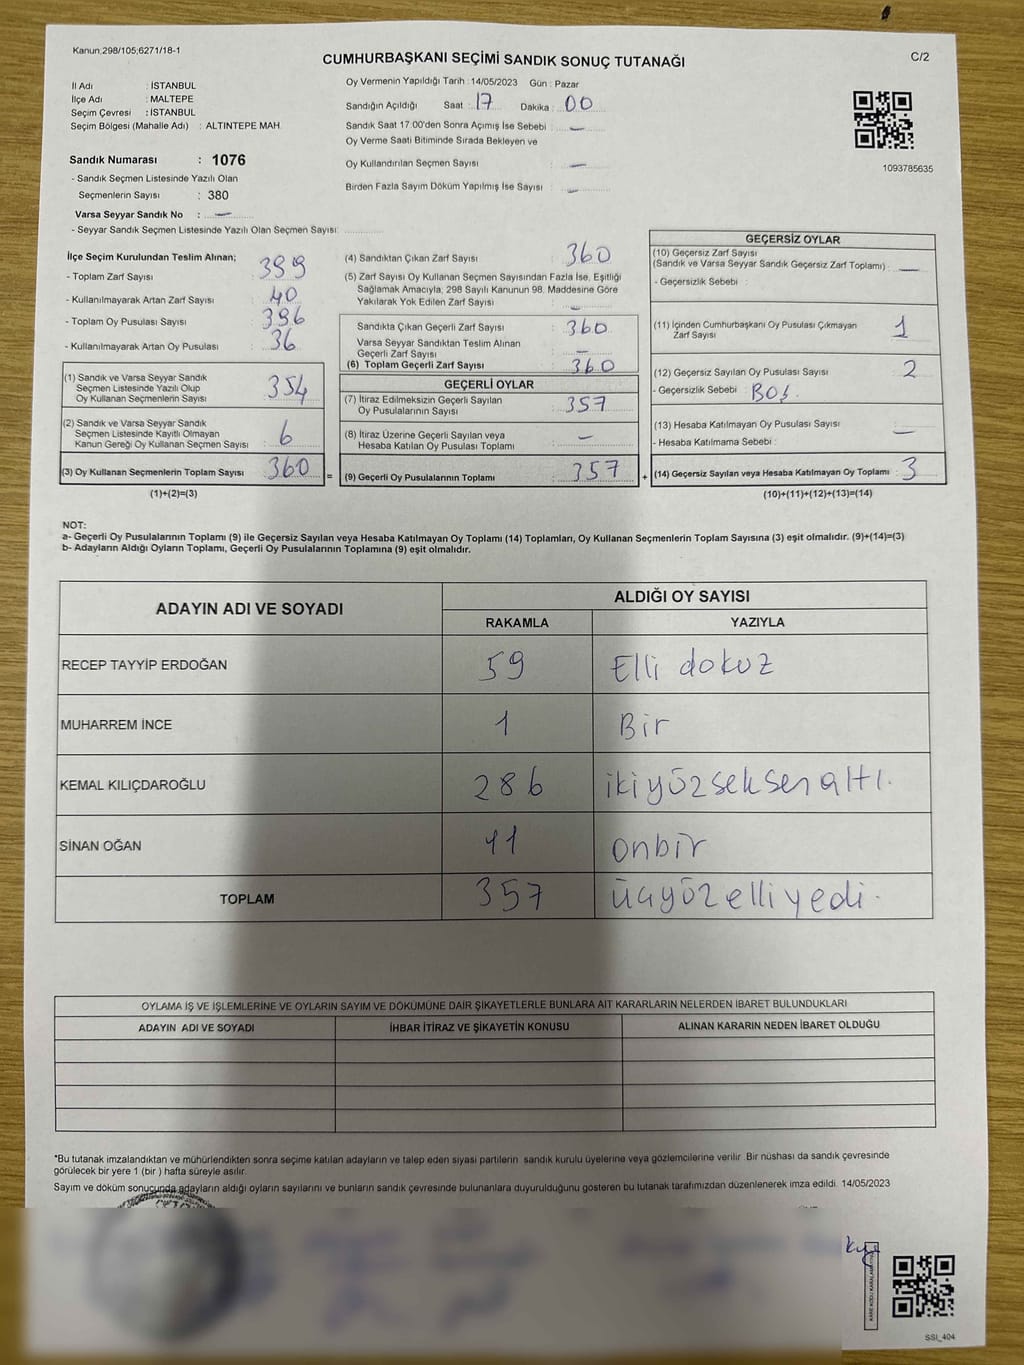 Kanun;298/105;6271/18-1
CUMHURBAŞKANI SEÇİMİ SANDIK SONUÇ TUTANAĞI
C/2
İl Adı : İSTANBUL
İlçe Adı : MALTEPE
Seçim Çevresi : İSTANBUL
Seçim Bölgesi (Mahalle Adı) : ALTINTEPE MAH
Sandık Numarası : 1076
- Sandık Seçmen Listesinde Yazılı Olan
Seçmenlerin Sayısı : 380
Varsa Seyyar Sandık No : —
- Seyyar Sandık Seçmen Listesinde Yazılı Olan Seçmen Sayısı:
Oy Vermenin Yapıldığı Tarih : 14/05/2023 Gün : Pazar
Sandığın Açıldığı Saat : 17 Dakika : 00
Sandık Saat 17.00'den Sonra Açımış İse Sebebi : —
Oy Verme Saati Bitiminde Sırada Bekleyen ve
Oy Kullandırılan Seçmen Sayısı : —
Birden Fazla Sayım Döküm Yapılmış İse Sayısı : —
1093785635
İlçe Seçim Kurulundan Teslim Alınan;
- Toplam Zarf Sayısı : 399
- Kullanılmayarak Artan Zarf Sayısı : 40
- Toplam Oy Pusulası Sayısı : 396
- Kullanılmayarak Artan Oy Pusulası : 36
(1) Sandık ve Varsa Seyyar Sandık
Seçmen Listesinde Yazılı Olup
Oy Kullanan Seçmenlerin Sayısı : 354
(2) Sandık ve Varsa Seyyar Sandık
Seçmen Listesinde Kayıtlı Olmayan
Kanun Gereği Oy Kullanan Seçmen Sayısı : 6
(3) Oy Kullanan Seçmenlerin Toplam Sayısı : 360 =
(1)+(2)=(3)
(4) Sandıktan Çıkan Zarf Sayısı : 360
(5) Zarf Sayısı Oy Kullanan Seçmen Sayısından Fazla İse, Eşitliği
Sağlamak Amacıyla; 298 Sayılı Kanunun 98. Maddesine Göre
Yakılarak Yok Edilen Zarf Sayısı : —
Sandıkta Çıkan Geçerli Zarf Sayısı : 360
Varsa Seyyar Sandıktan Teslim Alınan
Geçerli Zarf Sayısı : —
(6) Toplam Geçerli Zarf Sayısı : 360
GEÇERLİ OYLAR
(7) İtiraz Edilmeksizin Geçerli Sayılan
Oy Pusulalarının Sayısı : 357
(8) İtiraz Üzerine Geçerli Sayılan veya
Hesaba Katılan Oy Pusulası Toplamı : —
(9) Geçerli Oy Pusulalarının Toplamı : 357 +
GEÇERSİZ OYLAR
(10) Geçersiz Zarf Sayısı
(Sandık ve Varsa Seyyar Sandık Geçersiz Zarf Toplamı) : —
- Geçersizlik Sebebi :
(11) İçinden Cumhurbaşkanı Oy Pusulası Çıkmayan
Zarf Sayısı : 1
(12) Geçersiz Sayılan Oy Pusulası Sayısı : 2
- Geçersizlik Sebebi : BOŞ.
(13) Hesaba Katılmayan Oy Pusulası Sayısı : —
- Hesaba Katılmama Sebebi :
(14) Geçersiz Sayılan veya Hesaba Katılmayan Oy Toplamı : 3
(10)+(11)+(12)+(13)=(14)
NOT:
a- Geçerli Oy Pusulalarının Toplamı (9) ile Geçersiz Sayılan veya Hesaba Katılmayan Oy Toplamı (14) Toplamları, Oy Kullanan Seçmenlerin Toplam Sayısına (3) eşit olmalıdır. (9)+(14)=(3)
b- Adayların Aldığı Oyların Toplamı, Geçerli Oy Pusulalarının Toplamına (9) eşit olmalıdır.
ADAYIN ADI VE SOYADI ALDIĞI OY SAYISI
RAKAMLA YAZIYLA
RECEP TAYYİP ERDOĞAN 59 Elli dokuz
MUHARREM İNCE 1 Bir
KEMAL KILIÇDAROĞLU 286 ikiyüzseksenaltı.
SİNAN OĞAN 11 onbir
TOPLAM 357 üçyüzelliyedi.
OYLAMA İŞ VE İŞLEMLERİNE VE OYLARIN SAYIM VE DÖKÜMÜNE DAİR ŞİKAYETLERLE BUNLARA AİT KARARLARIN NELERDEN İBARET BULUNDUKLARI
ADAYIN ADI VE SOYADI İHBAR İTİRAZ VE ŞİKAYETİN KONUSU ALINAN KARARIN NEDEN İBARET OLDUĞU
*Bu tutanak imzalandıktan ve mühürlendikten sonra seçime katılan adayların ve talep eden siyasi partilerin sandık kurulu üyelerine veya gözlemcilerine verilir. Bir nüshası da sandık çevresinde
görülecek bir yere 1 (bir ) hafta süreyle asılır.
Sayım ve döküm sonucunda adayların aldığı oyların sayılarını ve bunların sandık çevresinde bulunanlara duyurulduğunu gösteren bu tutanak tarafımızdan düzenlenerek imza edildi. 14/05/2023
SSI_404